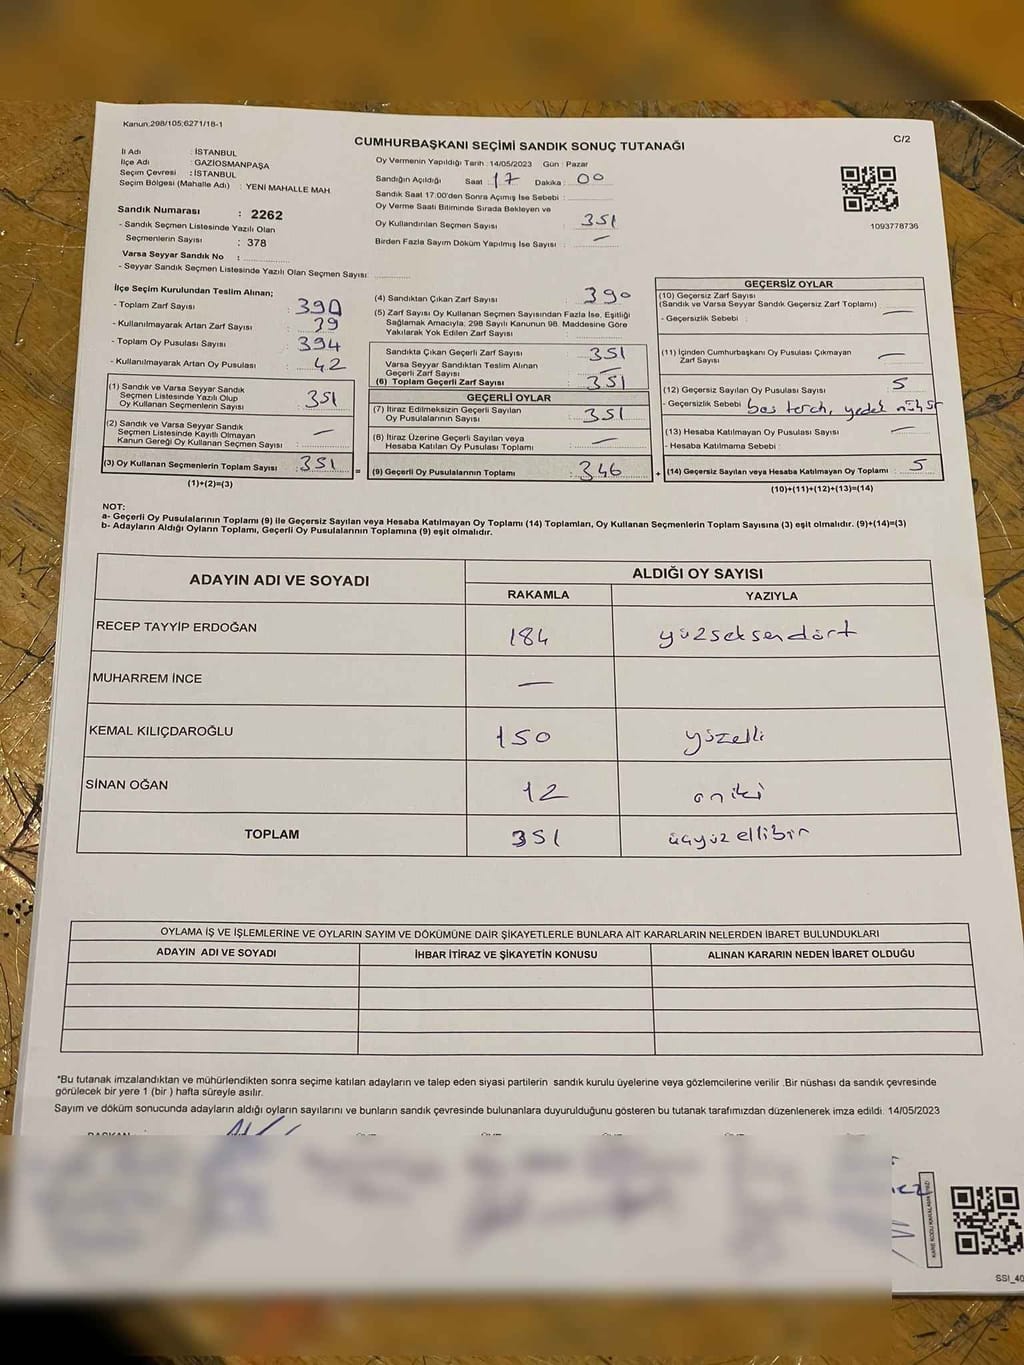 Kanun:298/105;6271/18-1
CUMHURBAŞKANI SEÇİMİ SANDIK SONUÇ TUTANAĞI
C/2
İl Adı : İSTANBUL
İlçe Adı : GAZİOSMANPAŞA
Seçim Çevresi : İSTANBUL
Seçim Bölgesi (Mahalle Adı) : YENİ MAHALLE MAH.
Sandık Numarası : 2262
- Sandık Seçmen Listesinde Yazılı Olan
Seçmenlerin Sayısı : 378
Varsa Seyyar Sandık No :
- Seyyar Sandık Seçmen Listesinde Yazılı Olan Seçmen Sayısı:
Oy Vermenin Yapıldığı Tarih : 14/05/2023 Gün : Pazar
Sandığın Açıldığı Saat : 17 Dakika : 00
Sandık Saat 17:00'den Sonra Açımış İse Sebebi :
Oy Verme Saati Bitiminde Sırada Bekleyen ve
Oy Kullandırılan Seçmen Sayısı : 351
Birden Fazla Sayım Döküm Yapılmış İse Sayısı : —
1093778736
İlçe Seçim Kurulundan Teslim Alınan;
- Toplam Zarf Sayısı : 390
- Kullanılmayarak Artan Zarf Sayısı : 39
- Toplam Oy Pusulası Sayısı : 394
- Kullanılmayarak Artan Oy Pusulası : 42
(1) Sandık ve Varsa Seyyar Sandık
Seçmen Listesinde Yazılı Olup
Oy Kullanan Seçmenlerin Sayısı : 351
(2) Sandık ve Varsa Seyyar Sandık
Seçmen Listesinde Kayıtlı Olmayan
Kanun Gereği Oy Kullanan Seçmen Sayısı : —
(3) Oy Kullanan Seçmenlerin Toplam Sayısı : 351
(1)+(2)=(3)
=
(4) Sandıktan Çıkan Zarf Sayısı : 390
(5) Zarf Sayısı Oy Kullanan Seçmen Sayısından Fazla İse, Eşitliği
Sağlamak Amacıyla, 298 Sayılı Kanunun 98. Maddesine Göre
Yakılarak Yok Edilen Zarf Sayısı :
Sandıkta Çıkan Geçerli Zarf Sayısı : 351
Varsa Seyyar Sandıktan Teslim Alınan
Geçerli Zarf Sayısı : —
(6) Toplam Geçerli Zarf Sayısı : 351
GEÇERLİ OYLAR
(7) İtiraz Edilmeksizin Geçerli Sayılan
Oy Pusulalarının Sayısı : 351
(8) İtiraz Üzerine Geçerli Sayılan veya
Hesaba Katılan Oy Pusulası Toplamı : —
(9) Geçerli Oy Pusulalarının Toplamı : 346
+
GEÇERSİZ OYLAR
(10) Geçersiz Zarf Sayısı
(Sandık ve Varsa Seyyar Sandık Geçersiz Zarf Toplamı) : —
- Geçersizlik Sebebi :
(11) İçinden Cumhurbaşkanı Oy Pusulası Çıkmayan
Zarf Sayısı : —
(12) Geçersiz Sayılan Oy Pusulası Sayısı : 5
- Geçersizlik Sebebi : boş terch, yedek
(13) Hesaba Katılmayan Oy Pusulası Sayısı : —
- Hesaba Katılmama Sebebi :
(14) Geçersiz Sayılan veya Hesaba Katılmayan Oy Toplamı : 5
(10)+(11)+(12)+(13)=(14)
NOT:
a- Geçerli Oy Pusulalarının Toplamı (9) ile Geçersiz Sayılan veya Hesaba Katılmayan Oy Toplamı (14) Toplamları, Oy Kullanan Seçmenlerin Toplam Sayısına (3) eşit olmalıdır. (9)+(14)=(3)
b- Adayların Aldığı Oyların Toplamı, Geçerli Oy Pusulalarının Toplamına (9) eşit olmalıdır.
ADAYIN ADI VE SOYADI ALDIĞI OY SAYISI
RAKAMLA YAZIYLA
RECEP TAYYİP ERDOĞAN 184 yüzseksendört
MUHARREM İNCE —
KEMAL KILIÇDAROĞLU 150 yüzelli
SİNAN OĞAN 12 oniki
TOPLAM 351 üçyüzellibir
OYLAMA İŞ VE İŞLEMLERİNE VE OYLARIN SAYIM VE DÖKÜMÜNE DAİR ŞİKAYETLERLE BUNLARA AİT KARARLARIN NELERDEN İBARET BULUNDUKLARI
ADAYIN ADI VE SOYADI İHBAR İTİRAZ VE ŞİKAYETİN KONUSU ALINAN KARARIN NEDEN İBARET OLDUĞU
*Bu tutanak imzalandıktan ve mühürlendikten sonra seçime katılan adayların ve talep eden siyasi partilerin sandık kurulu üyelerine veya gözlemcilerine verilir .Bir nüshası da sandık çevresinde
görülecek bir yere 1 (bir ) hafta süreyle asılır.
Sayım ve döküm sonucunda adayların aldığı oyların sayılarını ve bunların sandık çevresinde bulunanlara duyurulduğunu gösteren bu tutanak tarafımızdan düzenlenerek imza edildi. 14/05/2023
BAŞKAN
SSI_40